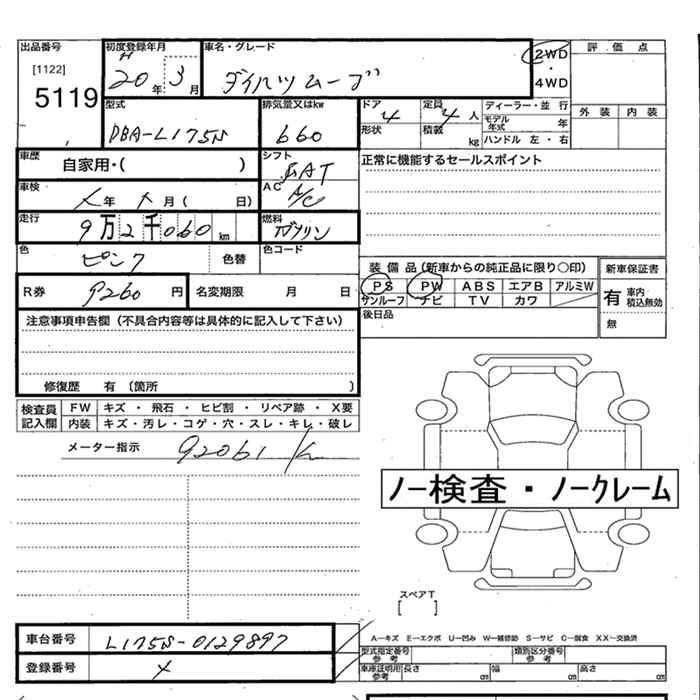 出品番号 [1122] 5119
初度登録年月 H 20年 3月
車名・グレード ダイハツムーブ
2WD・4WD
評価点
外装 内装
型式 DBA-L175S
排気量又はkw 660
ドア 4 定員 4人
形状 積載 kg
ディーラー・並行
モデル年式 年
ハンドル 左・右
車歴 自家用・( )
シフト AT
正常に機能するセールスポイント
車検 年 月( 日)
AC A/C
走行 9万2千060km
燃料 ガソリン
色 ピンク 色替
色コード
装備品(新車からの純正品に限り○印)
新車保証書
PS PW ABS エアB アルミW
サンルーフ ナビ TV カワ
有 車内積込無効
無
R券 9260円 名変期限 月 日
後日品
注意事項申告欄(不具合内容等は具体的に記入して下さい)
修復歴 有 〔箇所 〕
検査員記入欄
FW キズ・飛石・ヒビ割・リペア跡・X要
内装 キズ・汚レ・コゲ・穴・スレ・キレ・破レ
メーター指示 92061 K
ノー検査・ノークレーム
スペアT
[ ]
車台番号 L175S-0129897
登録番号 メ
A―キズ E―エクボ U―凹み W―補修跡 S―サビ C―腐食 XX―交換済
型式指定番号 参考 類別区分番号 参考
車庫証明用 参考 長さ cm 幅 cm 高さ cm